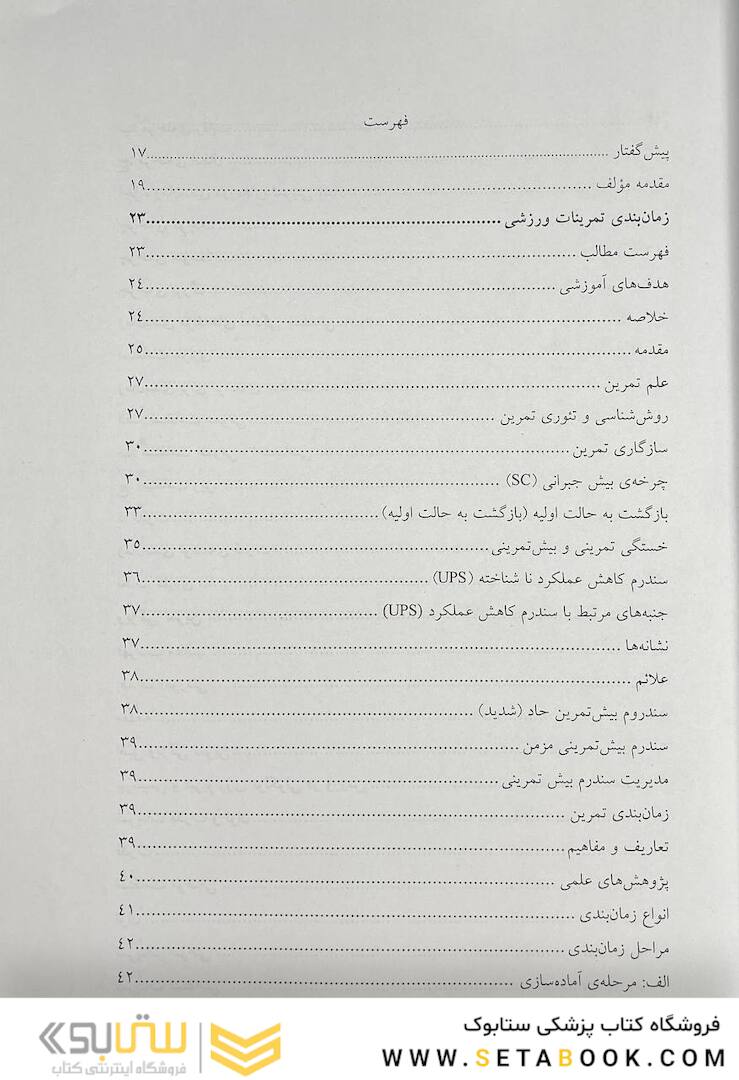 فهرست
پیش‌گفتار ........ ۱۷
مقدمه مؤلف ........ ۱۹
زمان‌بندی تمرینات ورزشی ........ ۲۳
فهرست مطالب ........ ۲۳
هدف‌های آموزشی ........ ۲٤
خلاصه ........ ۲٤
مقدمه ........ ۲٥
علم تمرین ........ ۲۷
روش‌شناسی و تئوری تمرین ........ ۲۷
سازگاری تمرین ........ ۳۰
چرخه‌ی بیش جبرانی (SC) ........ ۳۰
بازگشت به حالت اولیه (بازگشت به حالت اولیه) ........ ۳۳
خستگی تمرینی و بیش‌تمرینی ........ ۳٥
سندرم کاهش عملکرد نا شناخته (UPS) ........ ۳٦
جنبه‌های مرتبط با سندرم کاهش عملکرد (UPS) ........ ۳۷
نشانه‌ها ........ ۳۷
علائم ........ ۳۸
سندروم بیش‌تمرین حاد (شدید) ........ ۳۸
سندرم بیش‌تمرینی مزمن ........ ۳۹
مدیریت سندرم بیش تمرینی ........ ۳۹
زمان‌بندی تمرین ........ ۳۹
تعاریف و مفاهیم ........ ۳۹
پژوهش‌های علمی ........ ٤۰
انواع زمان‌بندی ........ ٤۱
مراحل زمان‌بندی ........ ٤۲
الف: مرحله‌ی آماده‌سازی ........ ٤۲
فروشگاه کتاب پزشکی ستابوک
WWW.SETABOOK.COM
ستابوک
فروشگاه اینترنتی کتاب